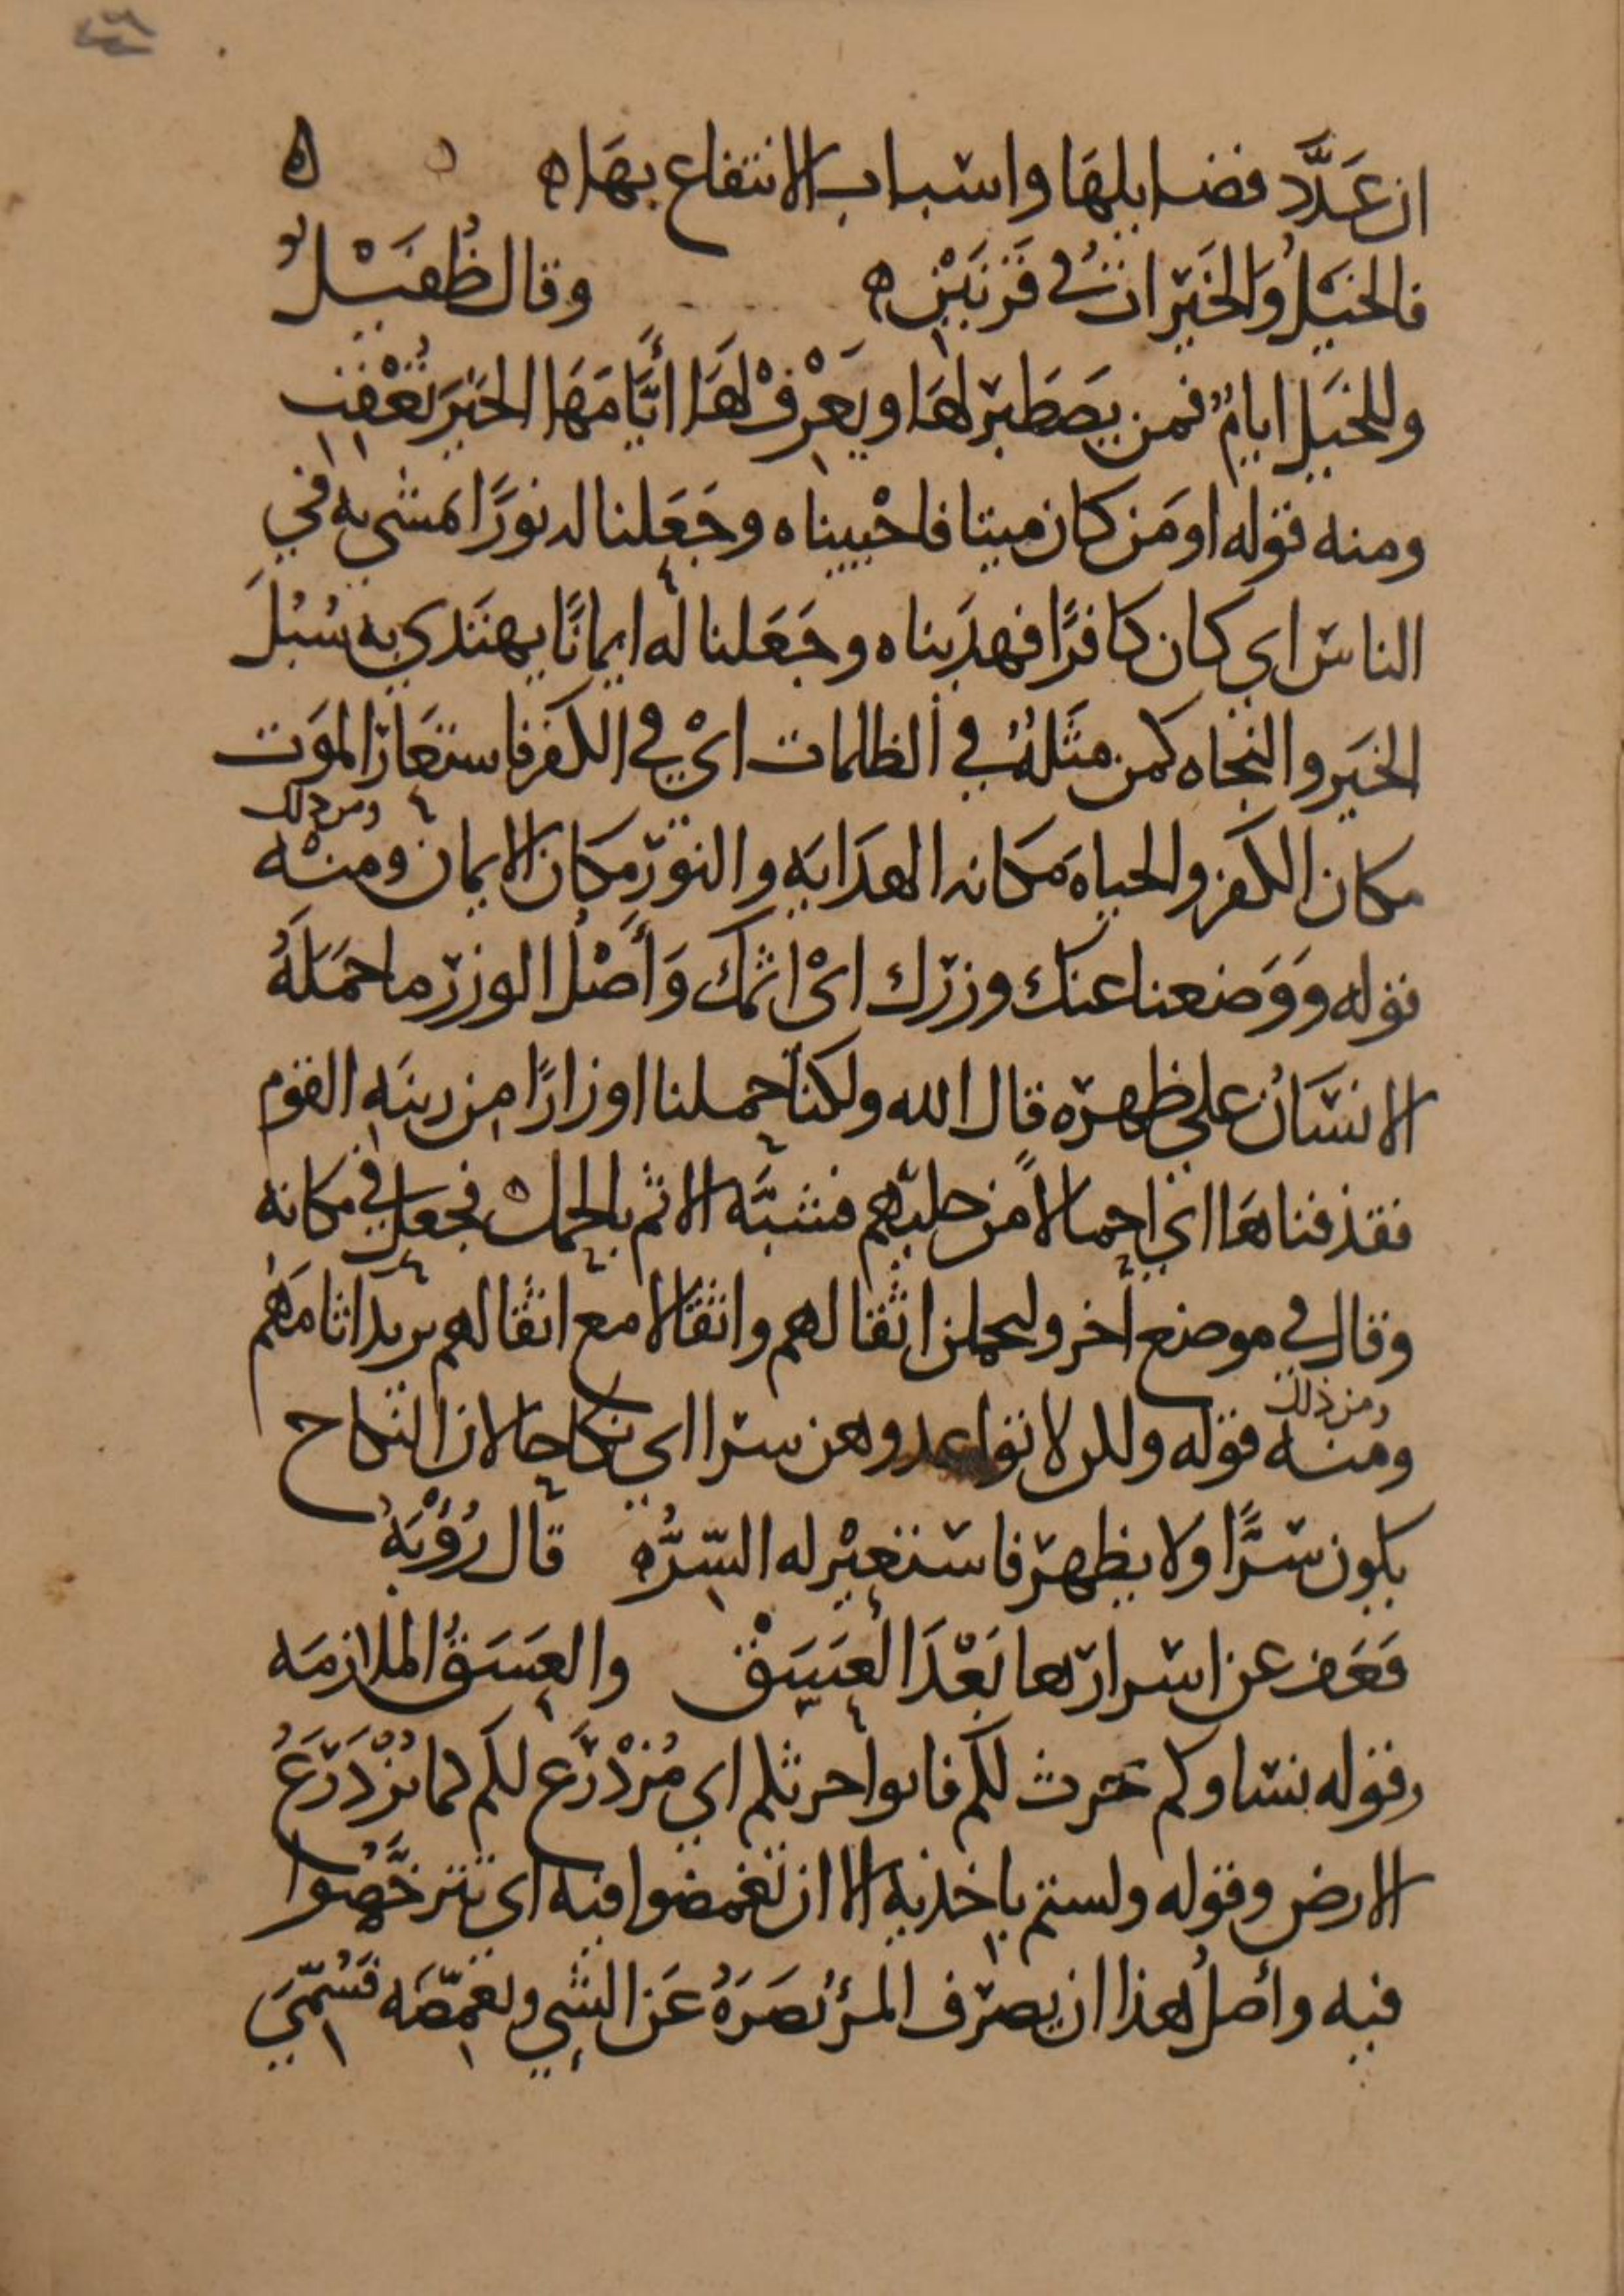 ان عَدَّد فضايلهَا واسباب الانتفاع بهَا ه ه
فالخيلُ والخَيْرانِ في قَرنَيْنِ ه وقال طُفَيْلٌ
وللخيل ايامٌ فمن يَصطَبر لهَا ويَعْرِفْ لهَا أيَّامَهَا الخيرَ تُعْقِبِ
ومنه قوله اومَن كان ميتا فاحْييناه وجَعَلنا له نورًا يمشي به في
الناس اي كان كافرًا فهديناه وجَعَلنا له ايمانًا يهتدي به سُبُلَ
الخَير والنجاه كمن مثَلُهُ في الظلمات اىْ في الكفر فاستعَار الموَت
ومن ذلك
مكان الكفر والحياه مَكانه الهدَايَه والنوَّر مكان الايمان ومنْه
قوله ووَضعنا عنك وزرك اىْ اثمك وَأصْلُ الوزر ما حمَلَهُ
الانسَانُ علي ظهره قال الله ولكنا حملنا اوزارًا من زينَهِ القوم
فقذفناهَا اي احمالاً من حليهم فشبَّه الاثم بالحمل فجعل في مكانه
وقال في موضع أخر وليحملن اثقالهم واثقالا مع اثقالهم يريد اثامَهُم
ومن ذلك
ومنه قوله ولكن لا تواعدوهن سرا اي نكاحا لان النكاح
يكون سرًّا ولا يظهر فاستعيْر له السّرُّه قال رُؤْبَهُ
فعَف عن اسرارها بَعْدَ العَسَقْ والعسَقُ الملازمَه
وقوله نساوكم حرث لكم فاتوا حرثكم اي مُزْدَرَع لكم كما تُزْدَرَعُ
الارض وقوله ولستم باخذيه الا ان تغمضوا فيه اي تترخَّصُوا
فيه وأصلُ هذا ان يصرف المرؤ بَصَرَهُ عَن الشي ويغمّضَه فسُمّيَ